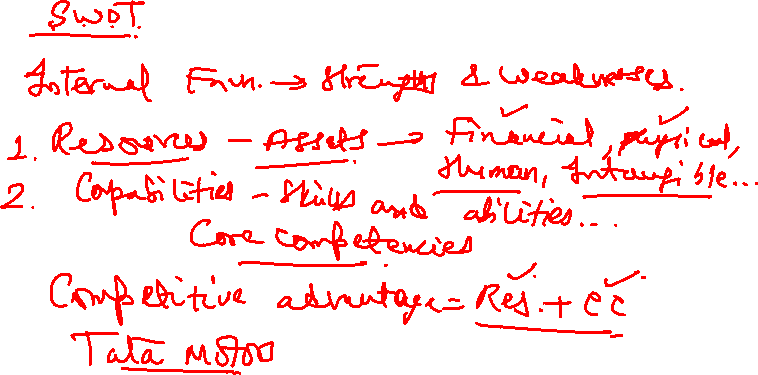 SWOT
Internal Envn. → Strengths & Weaknesses.
1. Resources - Assets → Financial, physical,
Human, Intangible...
2. Capabilities - Skills and abilities...
Core competencies
Competitive advantage = Res. + CC
Tata Motors